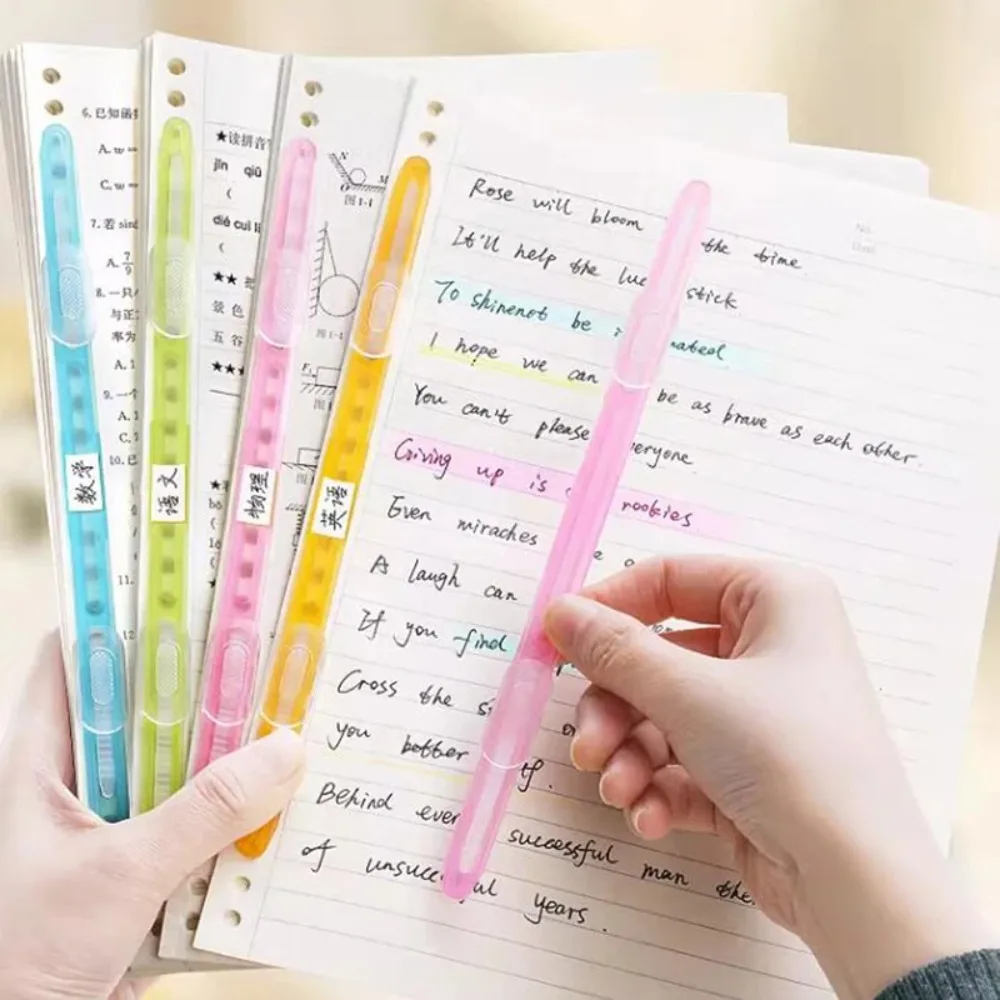 6. 已知函
A. w =
C. w =
7. 若 sin
A. 7/9
8. 一只
与正
率为
A. 1
9. 一个
A. 1
C.
10. 已
11.
12
数学
★读拼音
jīn qiū
(
dié cuì
(
★★
景 色
五 谷
★★★
语文
N
O M
图1-1
F₁
图
物理
英语
No.
Date
Rose will bloom the time
It'll help the luc stick.
To shinenot be mated
I hope we can be as brave as each other.
You can't please eryone
Giving up is rookies
Even miracles
A laugh can
If you find
Cross the s
you better if.
Behind ever successful man the
of unsucce ul years.